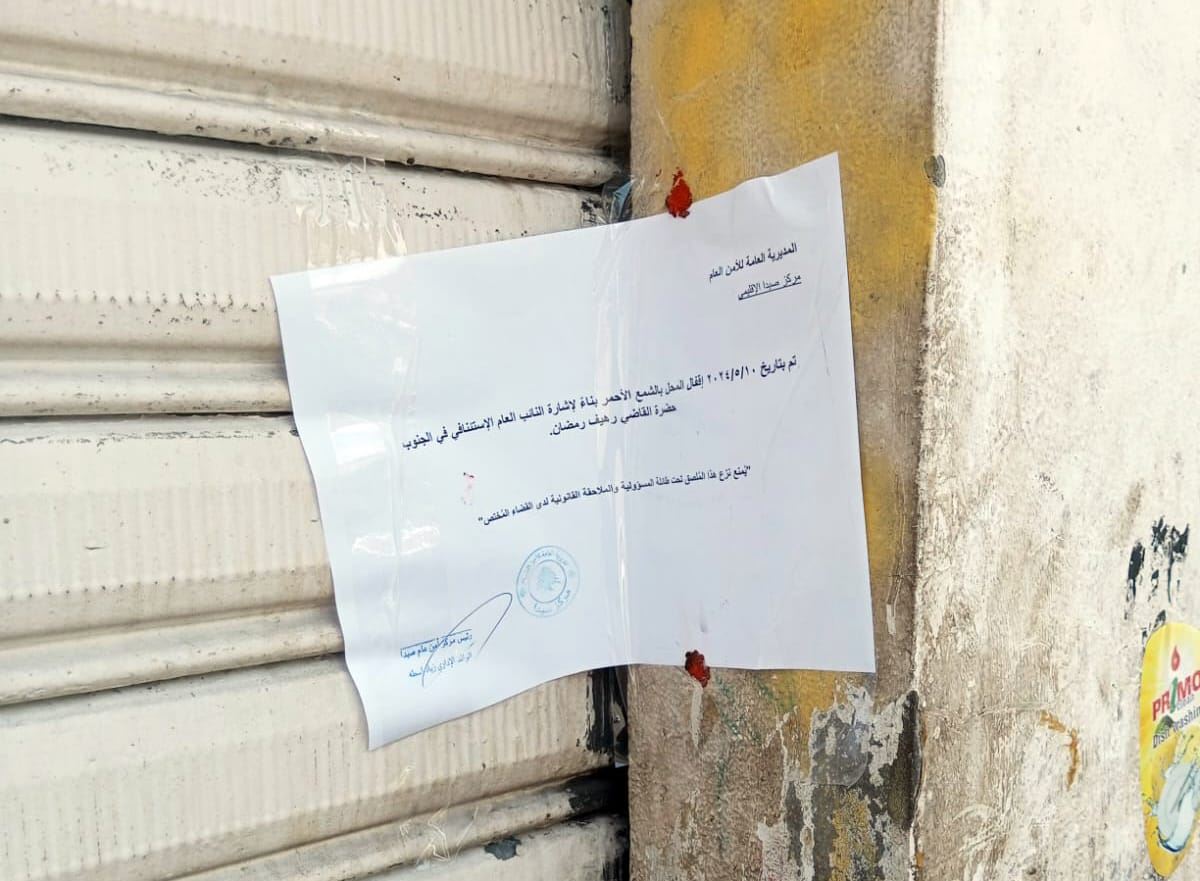 المديرية العامة للأمن العام
مركز صيدا الإقليمي
تم بتاريخ ٢٠٢٤/٥/١٠ إقفال المحل بالشمع الأحمر بناءً لإشارة النائب العام الإستئنافي في الجنوب
حضرة القاضي رهيف رمضان.
"يُمنع نزع هذا المُلصق تحت طائلة المسؤولية والملاحقة القانونية لدى القضاء المُختص"
مركز صيدا
رئيس مركز أمن عام صيدا
الرائد الإداري زياد
PRIMO